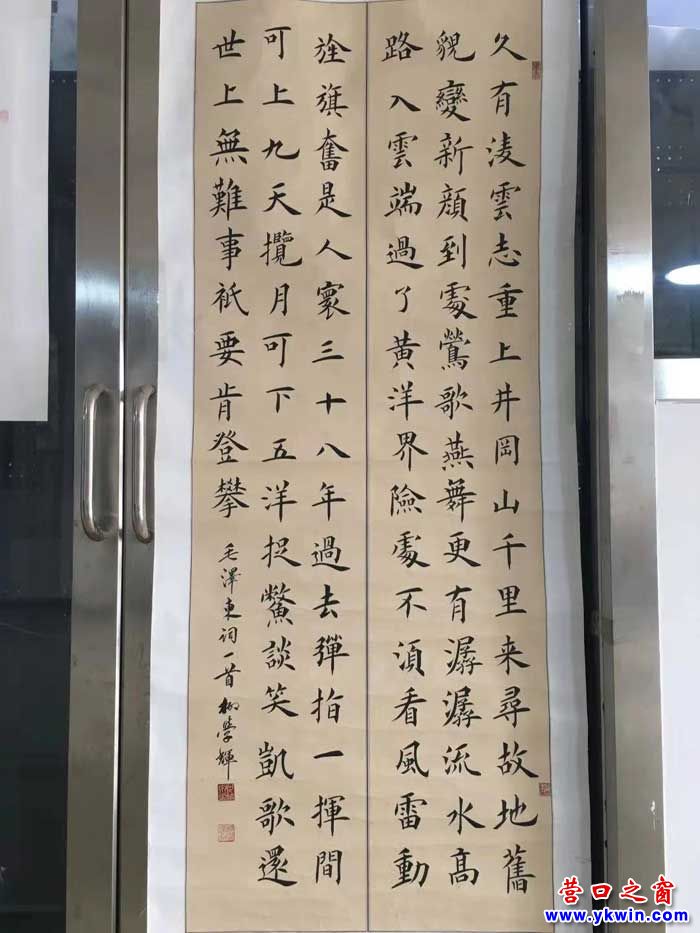 久有淩雲志重上井岡山千里来尋故地舊
貌變新顔到處鶯歌燕舞更有潺潺流水高
路入雲端過了黄洋界險處不湏看風雷動
旌旗奮是人寰三十八年過去彈指一揮間
可上九天攬月可下五洋捉鱉談笑凱歌還
世上無難事衹要肯登攀
毛澤東詞一首 柳學輝
营口之窗
www.ykwin.com